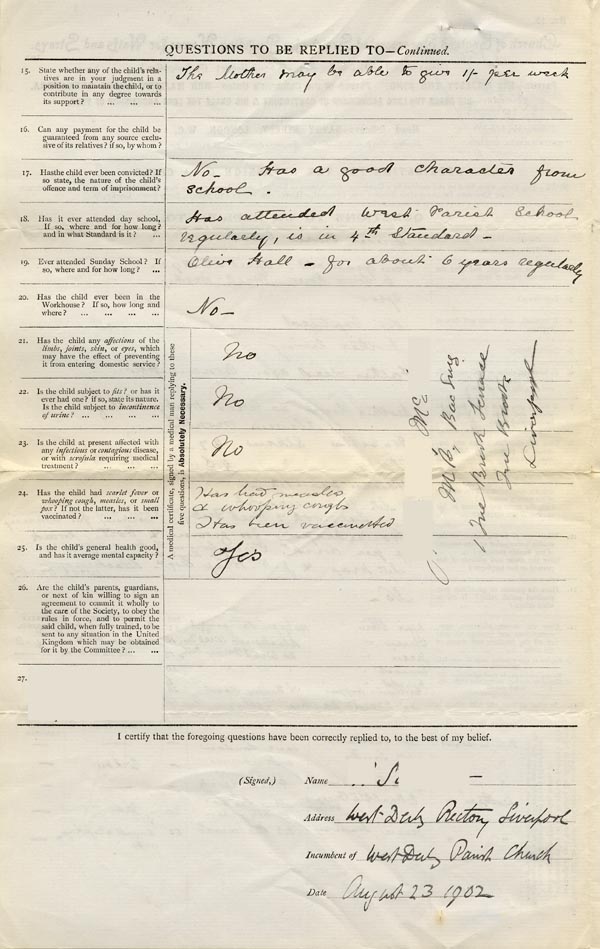 QUESTIONS TO BE REPLIED TO—Continued.
15. State whether any of the child's rela-
tives are in your judgment in a
position to maintain the child, or to
contribute in any degree towards
its support? ... ... ...
The Mother may be able to give 1/- per week
16. Can any payment for the child be
guaranteed from any source exclu-
sive of its relatives? if so, by whom?
17. Has the child ever been convicted? If
so state, the nature of the child's
offence and term of imprisonment?
No - Has a good character from
School.
18. Has it ever attended day school,
If so, where and for how long?
and in what Standard is it? ...
Has attended West Parish School
regularly, is in 4th Standard -
19. Ever attended Sunday School? If
so, where and for how long? ...
Olive Hall - for about 6 years regularly
20. Has the child ever been in the
Workhouse? If so, how long and
where? ... ... ... ...
No -
A medical certificate, signed by a medical man replying to these
five questions, is Absolutely Necessary.
21. Has the child any affections of the
limbs, joints, skin, or eyes, which
may have the effect of preventing
it from entering domestic service?
No
22. Is the child subject to fits? or has it
ever had one? if so, state its nature.
Is the child subject to incontinence
of urine? ... ... ... ...
No
23. Is the child at present affected with
any infectious or contagious disease,
or with scrofula requiring medical
treatment? ... ... ...
No
24. Has the child had scarlet fever or
whooping cough, measles, or small
pox? If not the latter, has it been
vaccinated? ... ... ...
Has had measles
& whooping cough
Has been vaccinated
25. Is the child's general health good,
and has it average mental capacity?
Yes
Mc
M.B.
Liverpool
26. Are the child's parents, guardians,
or next of kin willing to sign an
agreement to commit it wholly to
the care of the Society, to obey the
rules in force, and to permit the
said child, when fully trained, to be
sent to any situation in the United
Kingdom which may be obtained
for it by the Committee? ... ...
27.
I certify that the foregoing questions have been correctly replied to, to the best of my belief.
(Signed,) Name
Address West Derby Rectory Liverpool
Incumbent of West Derby Parish Church
Date August 23 1902